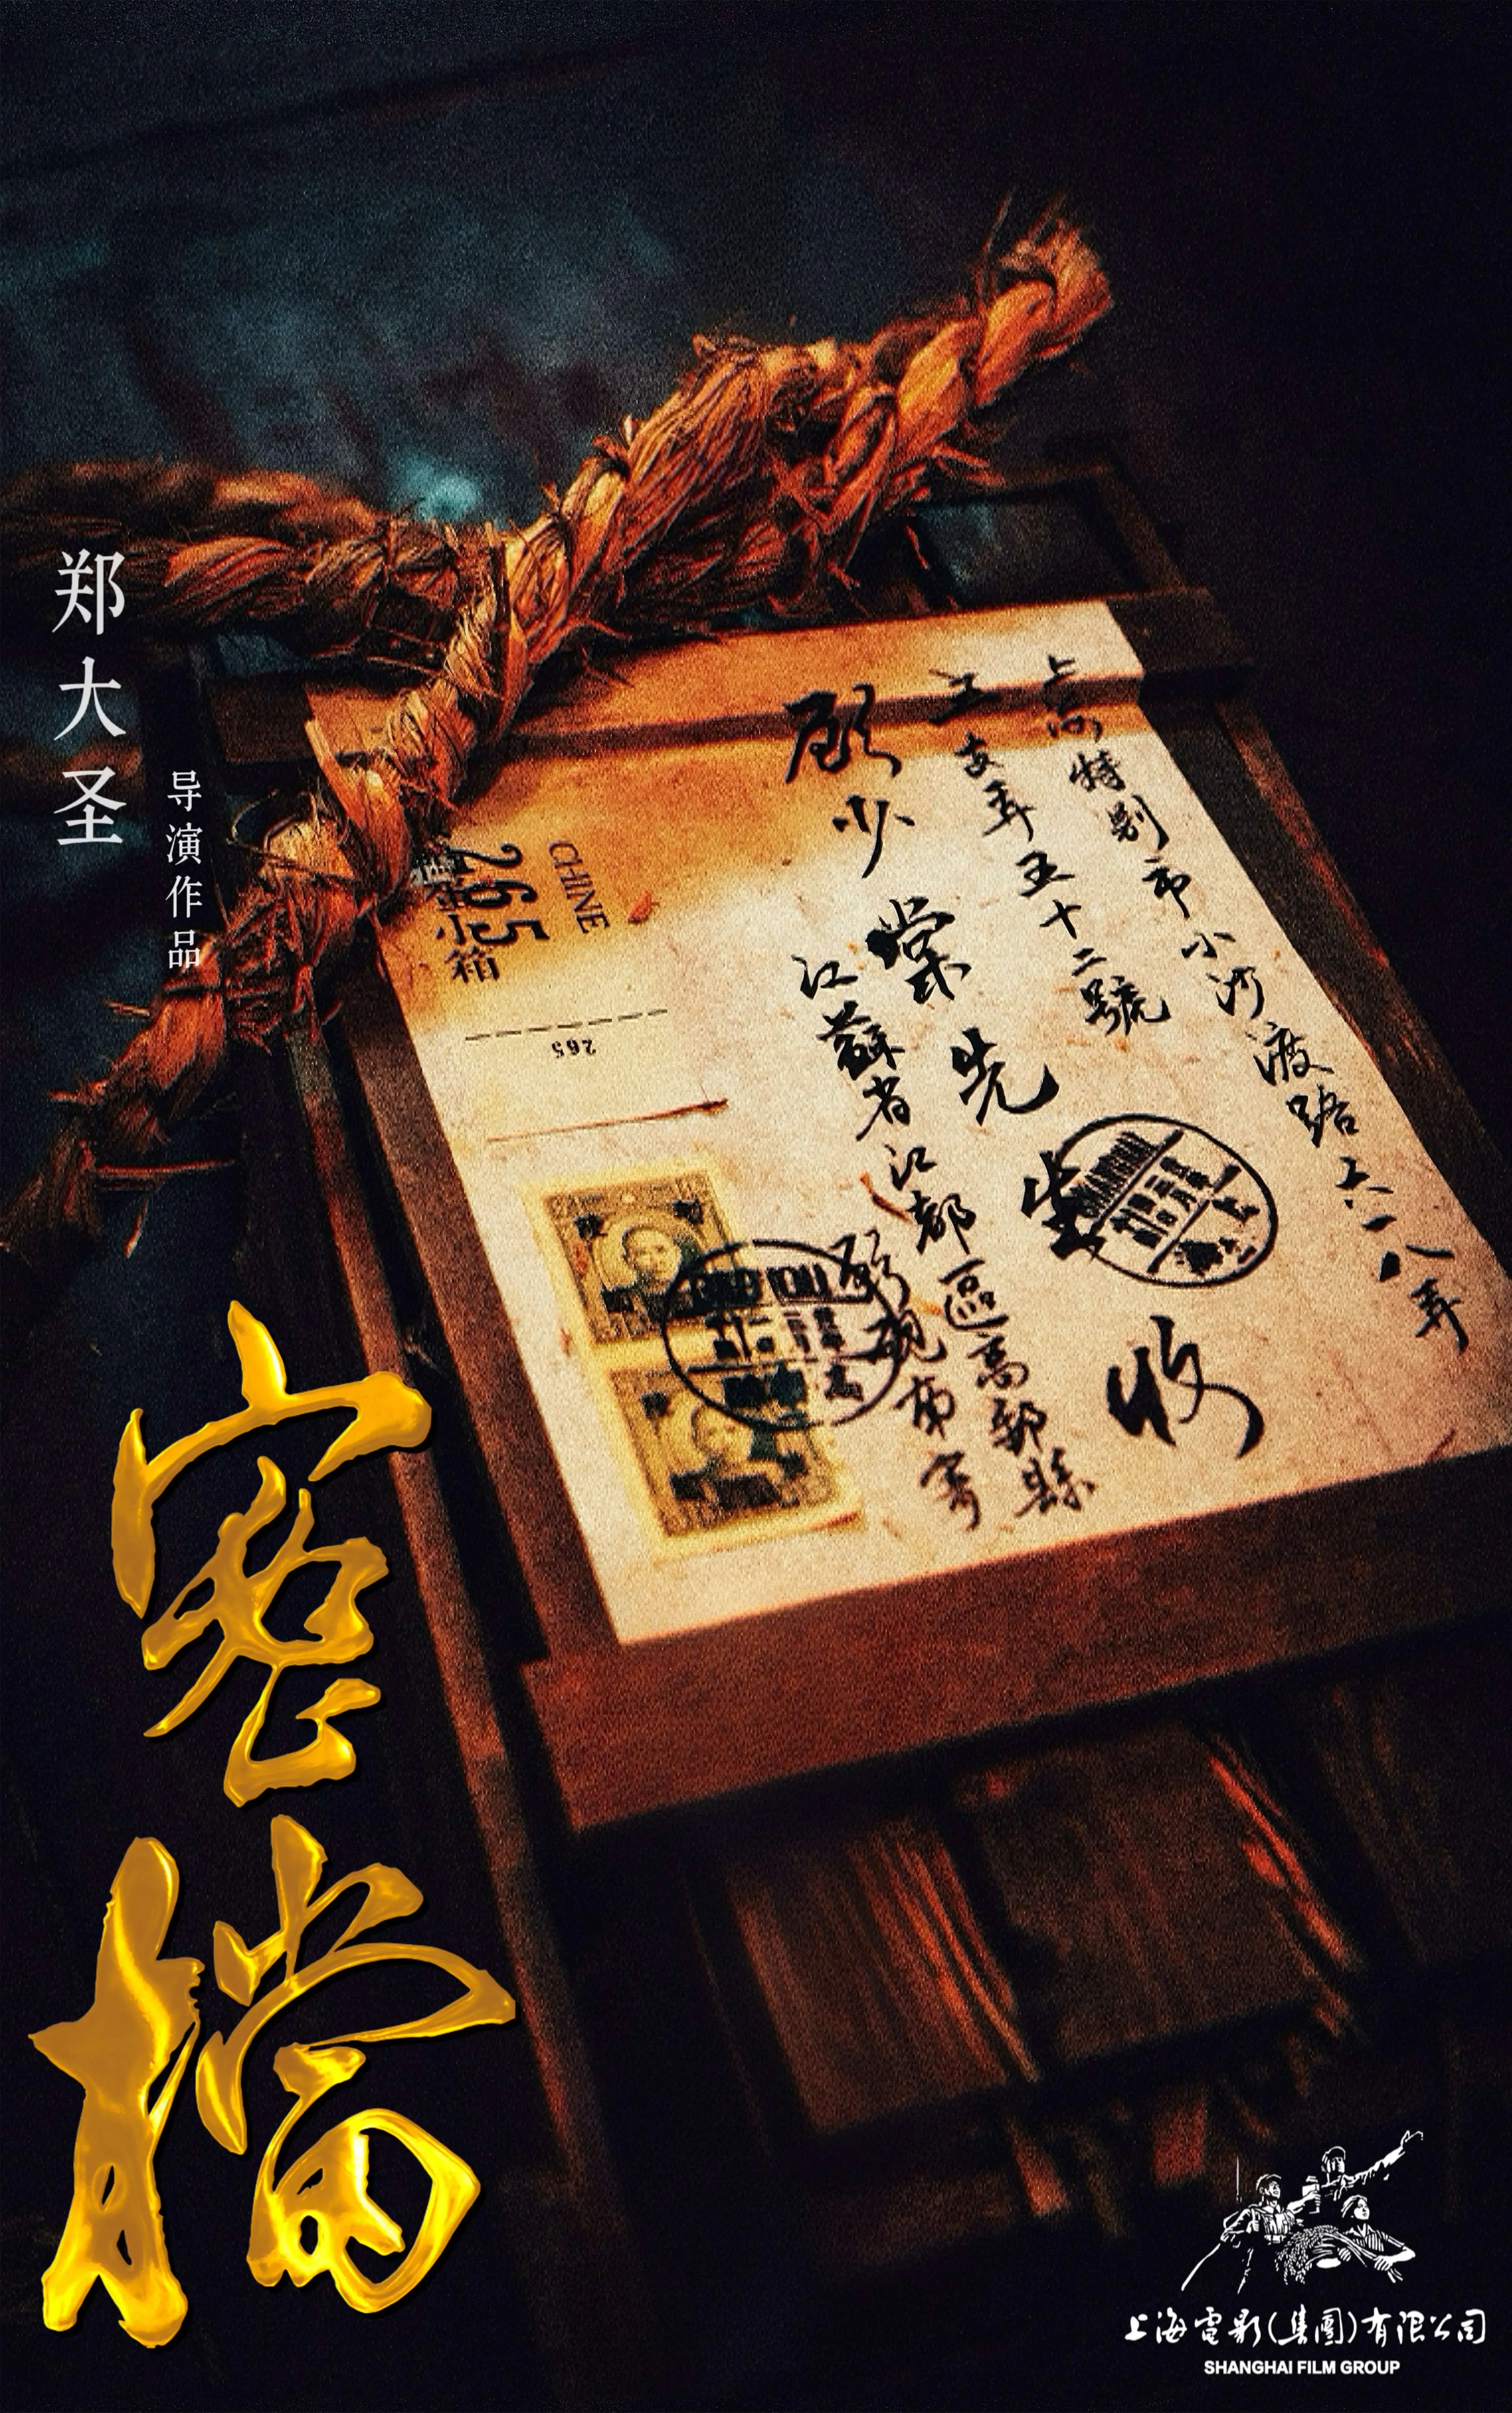 郑大圣
导演作品
上海特别市小沙渡路六一八弄
五十二號
顾少棠先生收
江蘇省江都區高郵縣
寄
CHINE
265
箱
265
SHANGHAI
密檔
上海電影(集團)有限公司
SHANGHAI FILM GROUP